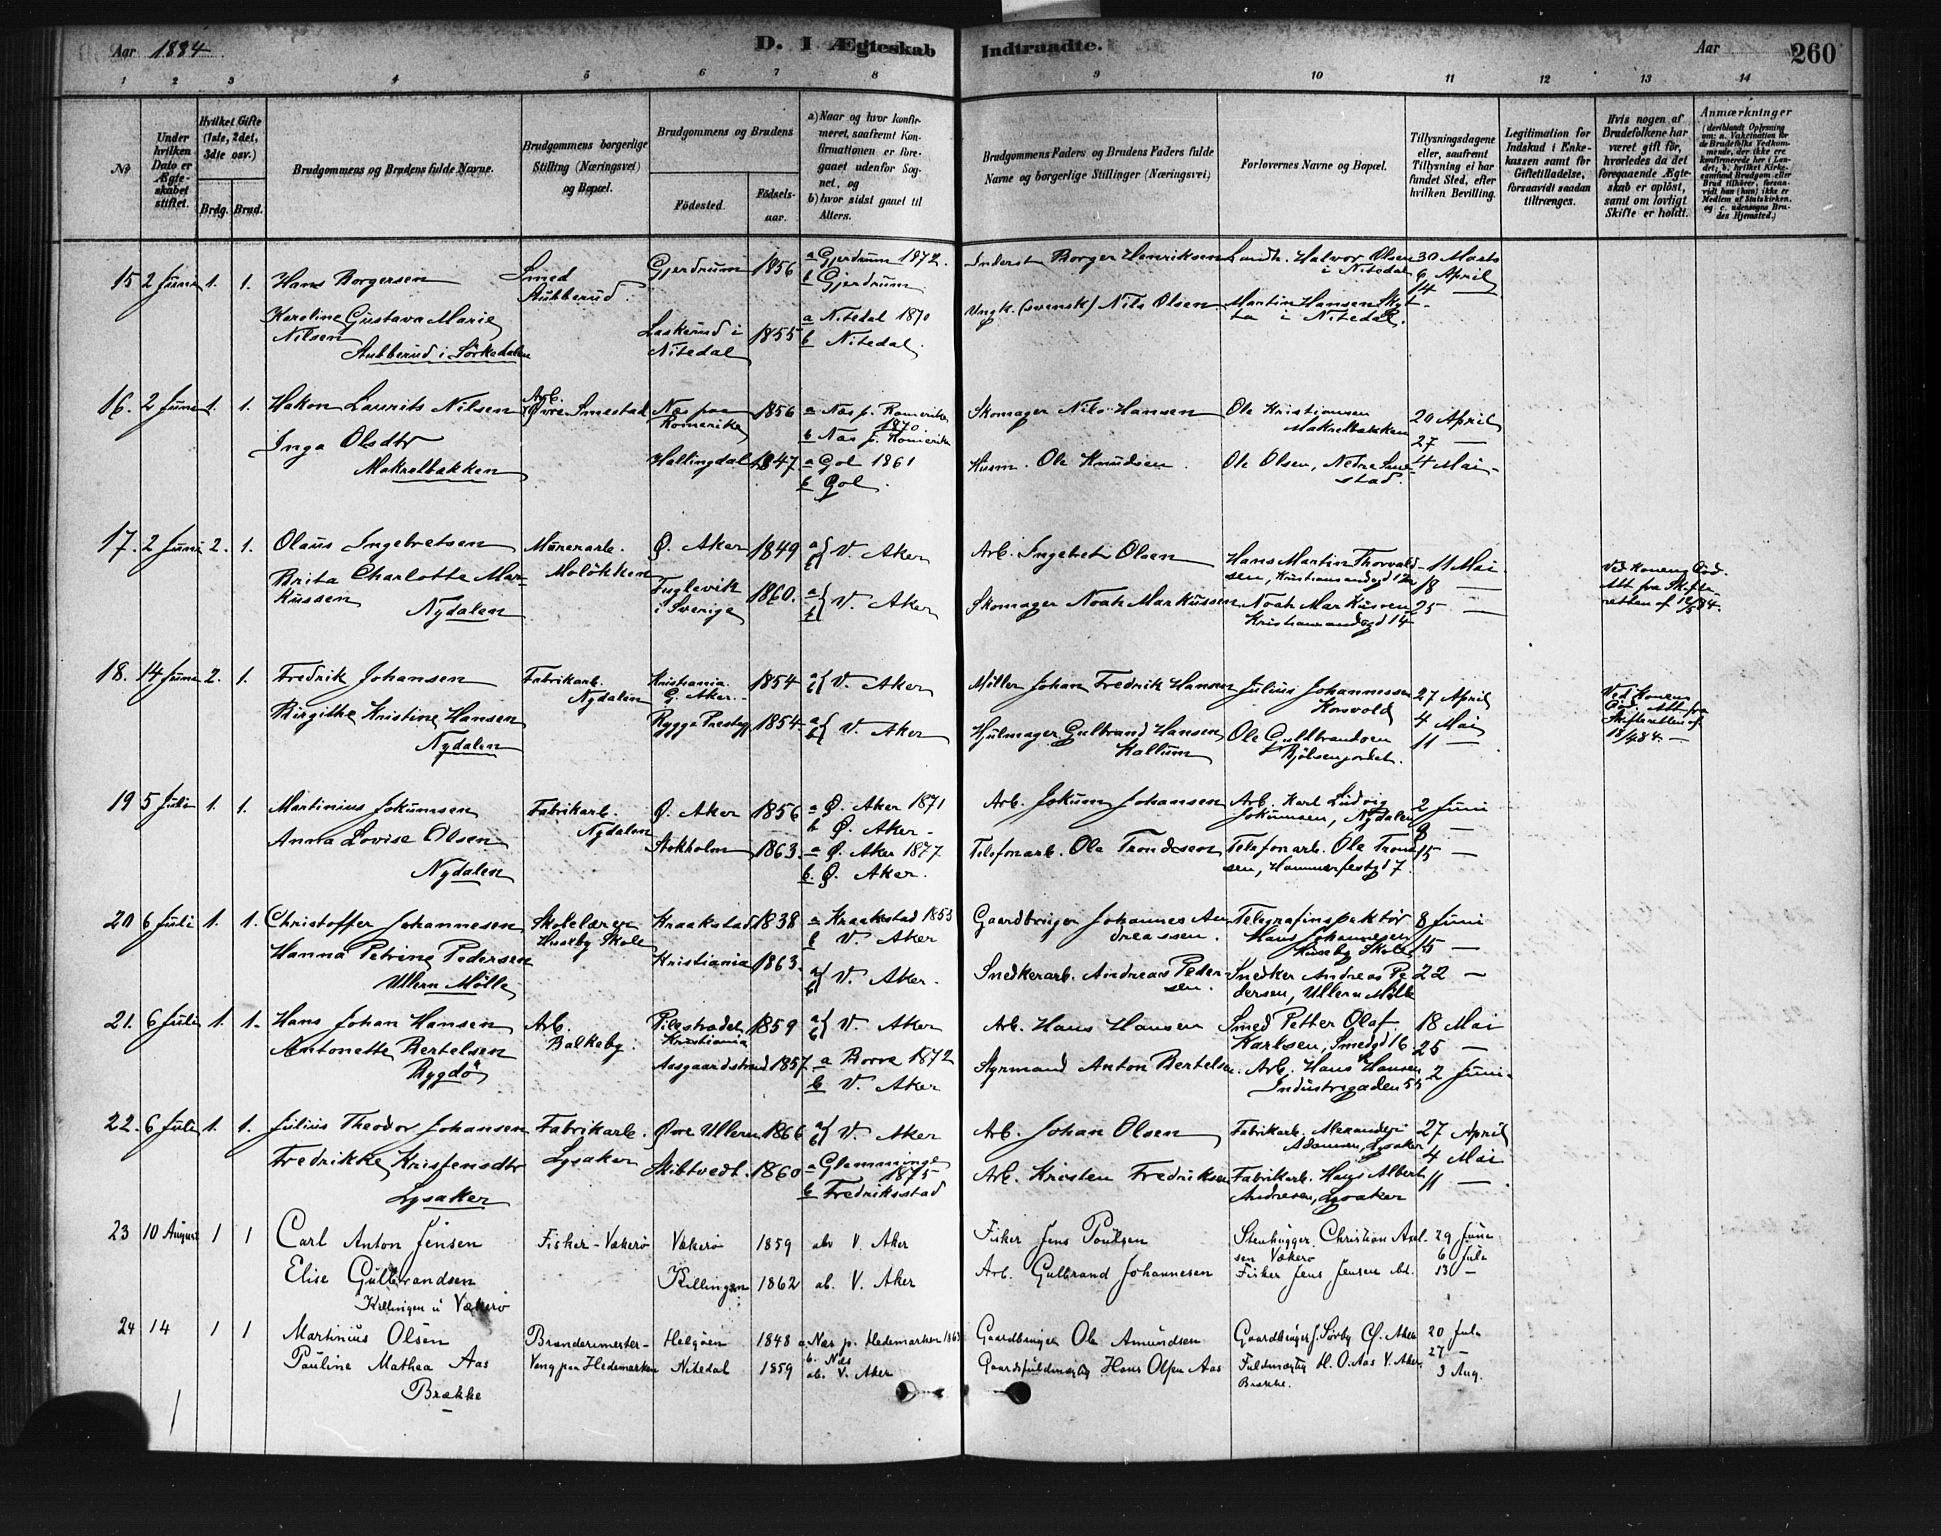 Aar 1884.
D. I Ægteskab Indtraadte.
Aar
260
1 2 3 4 5 6 7 8 9 10 11 12 13 14
No
Under hvilken Dato er Ægteskabet stiftet.
Hvilket Gifte (1ste, 2det, 3die osv.)
Brdg. Brud.
Brudgommens og Brudens fulde Navne.
Brudgommens borgerlige Stilling (Næringsvei) og Bopæl.
Brudgommens og Brudens
Fødested.
Fødselsaar.
a) Naar og hvor konfirmeret, saafremt Konfirmationen er foregaaet udenfor Sognet, og
b) hvor sidst gaaet til Alters.
Brudgommens Faders og Brudens Faders fulde Navne og borgerlige Stillinger (Næringsvei)
Forlovernes Navne og Bopæl.
Tillysningsdagene eller, saafremt Tillysning ei har fundet Sted, efter hvilken Bevilling.
Legitimation for Indskud i Enkekassen samt for Giftetilladelse, forsaavidt saadan tiltrænges.
Hvis nogen af Brudefolkene har været gift før, hvorledes da det foregaaende Ægteskab er opløst, samt om lovligt Skifte er holdt.
Anmærkninger
15 2 Juni 1. 1. Hans Borgersen Smed Stubberud. Gjerdrum 1856 a Gjerdrum 1872. b Gjerdrum Inderst Borger Henriksen Landh. Halvor Olsen i Nitedal 30 Marts 6 April 14 —
Karoline Gustava Marie Nilsen Stubberud i Sörkedalen Laskerud i Nitedal 1855 a Nitedal 1870 b Nitedal Ungk. (svensk) Nils Olsen Martin Hansen Skytta i Nitedal.
16. 2 Juni 1. 1. Hakon Laurits Nilsen Arb. Øvre Smestad Næs paa Romerike 1856 a Næs p. Romerike 1870 b Næs p. Romerike Skomager Nils Hansen Ole Kristiansen Makrelbakken 20 April 27 —
Inga Olsdtr Makrelbakken Hallingdal 1847 a Gol 1861 b Gol. Husm. Ole Knudsen. Ole Olsen, Nedre Smestad. 4 Mai
17. 2 Juni 2. 1. Olaus Ingebretsen Murerarb. Moløkken Ø. Aker 1849 a b V. Aker Arb. Ingebret Olsen Hans Martin Thorvaldsen, Kristiansandsgd 12 11 Mai 18 — Ved Konens Död. Att fra Skifteretten af 12/5 84.
Brita Charlotte Markussen Nydalen Fuglevik i Sverige 1860. a b V. Aker Skomager Noah Markussen Noah Markussen Kristiansandsgd 14 25 —
18. 14 Juni 2. 1. Fredrik Johansen Fabrikarb. Nydalen Kristiania G. Aker 1854 a b V. Aker Möller Johan Fredrik Hansen Julius Johannessen Korsvold 27 April 4 Mai Ved Konens Död. Att fra Skifteretten af 18/4 84. —
Birgithe Kristine Hansen Nydalen Rygge Prestg 1854 a b V. Aker Hjulmager Gulbrand Hansen Kallum Ole Guldbrandsen Bjölsenjordet. 11 —
19 5 Juli 1. 1. Martinius Jokumsen Fabrikarb. Nydalen Ø. Aker 1856 a Ø. Aker 1871 b Ø. Aker Arb. Jokum Johansen Arb. Karl Ludvig Jokumsen, Nydalen 2 Juni 8 —
Anna Lovise Olsen Nydalen Stokholm 1863 a Ø. Aker 1877 b. Ø. Aker. Telefonarb. Ole Trondsen Telefonarb. Ole Tronsen, Hammerfestgd 7. 15 —
20 6 Juli 1. 1. Christoffer Johannesen Skolelærer Huseby Skole Kraakstad 1838 a Kraakstad 1853 b V. Aker Gaardbruger Johannes Andreassen. Telegrafinspektör Hans Johannesen Huseby Skole 8 Juni 15 —
Hanna Petrine Pedersen Ullern Mölle Kristiania 1863. a b V. Aker. Snedkerarb. Andreas Pedersen. Snedker Andreas Pedersen, Ullern Mölle 22 —
21. 6 Juli 1. 1. Hans Johan Hansen Arb. Balkeby. Pilestrædet Kristiania 1859 a b V. Aker Arb. Hans Hansen Smed Petter Olaf Karlsen, Smedgd 16. 18 Mai 25 —
Antonette Bertelsen Bygdö Aasgaardstrand 1857 a Borre 1872 b V. Aker Styrmand Anton Bertelsen. Arb. Hans Hansen Industrigaden 55 2 Juni
22. 6 Juli 1. 1. Julius Theodor Johansen Fabrikarb. Lysaker Øvre Ullern 1866 a b V. Aker Arb. Johan Olsen Fabrikarb. Alexander Adamsen, Lysaker 27 April 4 Mai
Fredrikke Kristensdtr Lysaker Skibtvedt. 1860 a Glemminge 1875 b Fredriksstad Arb. Kristen Fredriksen Fabrikarb. Hans Albert Andresen, Lysaker 11 —
23 10 August 1 1 Carl Anton Jensen Fisker - Vækerö Vækerö 1859 ab V. Aker Fisker Jens Poulsen Stenhugger Christian Axelsen Vækerö 29 Juni 6 Juli
Elise Gulbrandsen Killingen u Vækerö Killingen 1862 ab. V. Aker Arb. Gulbrand Johannesen Fisker Jens Jensen ibd. 13 —
24 14 1 1 Martinius Olsen Brænderimester - Vang paa Hedemarken Helgöen 1848 a Næs p. Hedemarken 1863 b. Næs Gaardbruger Ole Amundsen Gaardbruger J. Sörby Ø. Aker 20 Juli 27 —
Pauline Mathea Aas Brække Nitedal 1859 ab. V. Aker Gaardsfuldmægtig Hans Olsen Aas Fuldmægtig H. O. Aas V. Aker, Brække. 3 Aug.